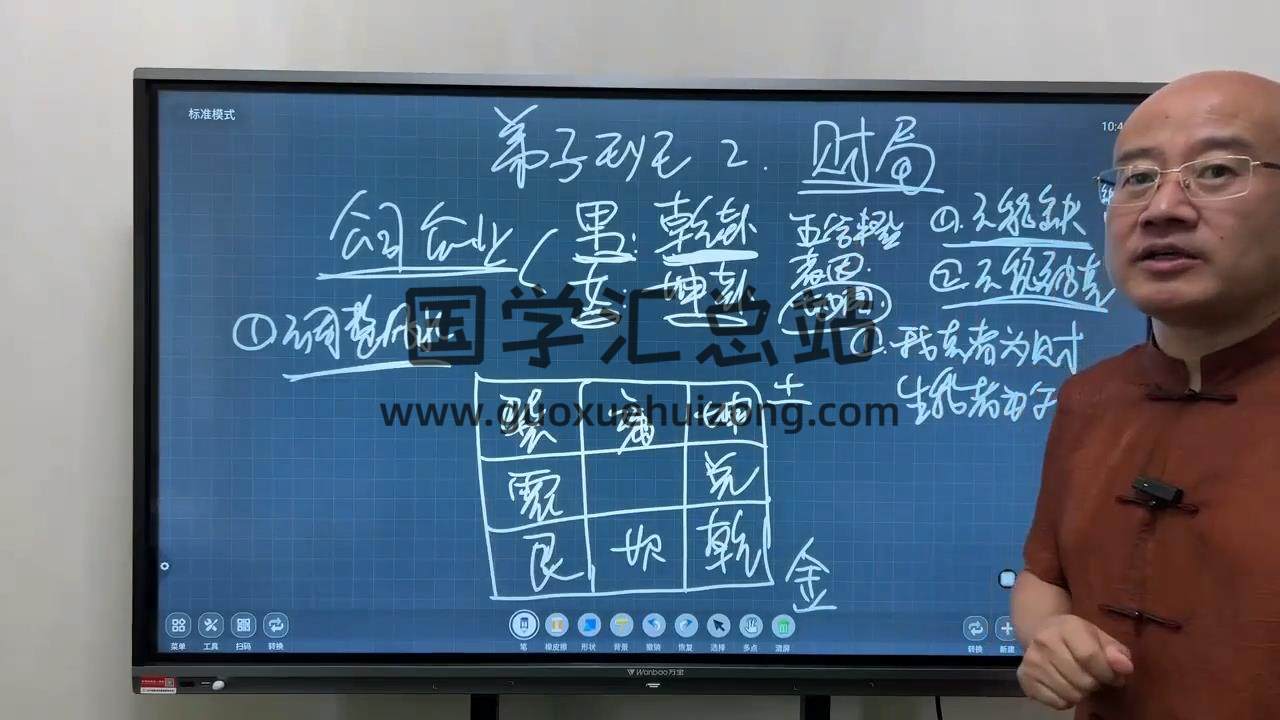 标准模式
10:4
弟子班 2. 财局
公司 企业 男: 乾卦
女: 坤卦
①调整风水
①.不能缺
②.不能被克
①.我克者为财
生我者为
国学汇总站
www.guoxuehuizong.com
巽 离 坤 土
震 兑
艮 坎 乾 金
菜单 工具 扫码 转换 笔 橡皮擦 形状 背景 撤销 恢复 选择 多点 清屏 转换 新建
Wanboo万宝